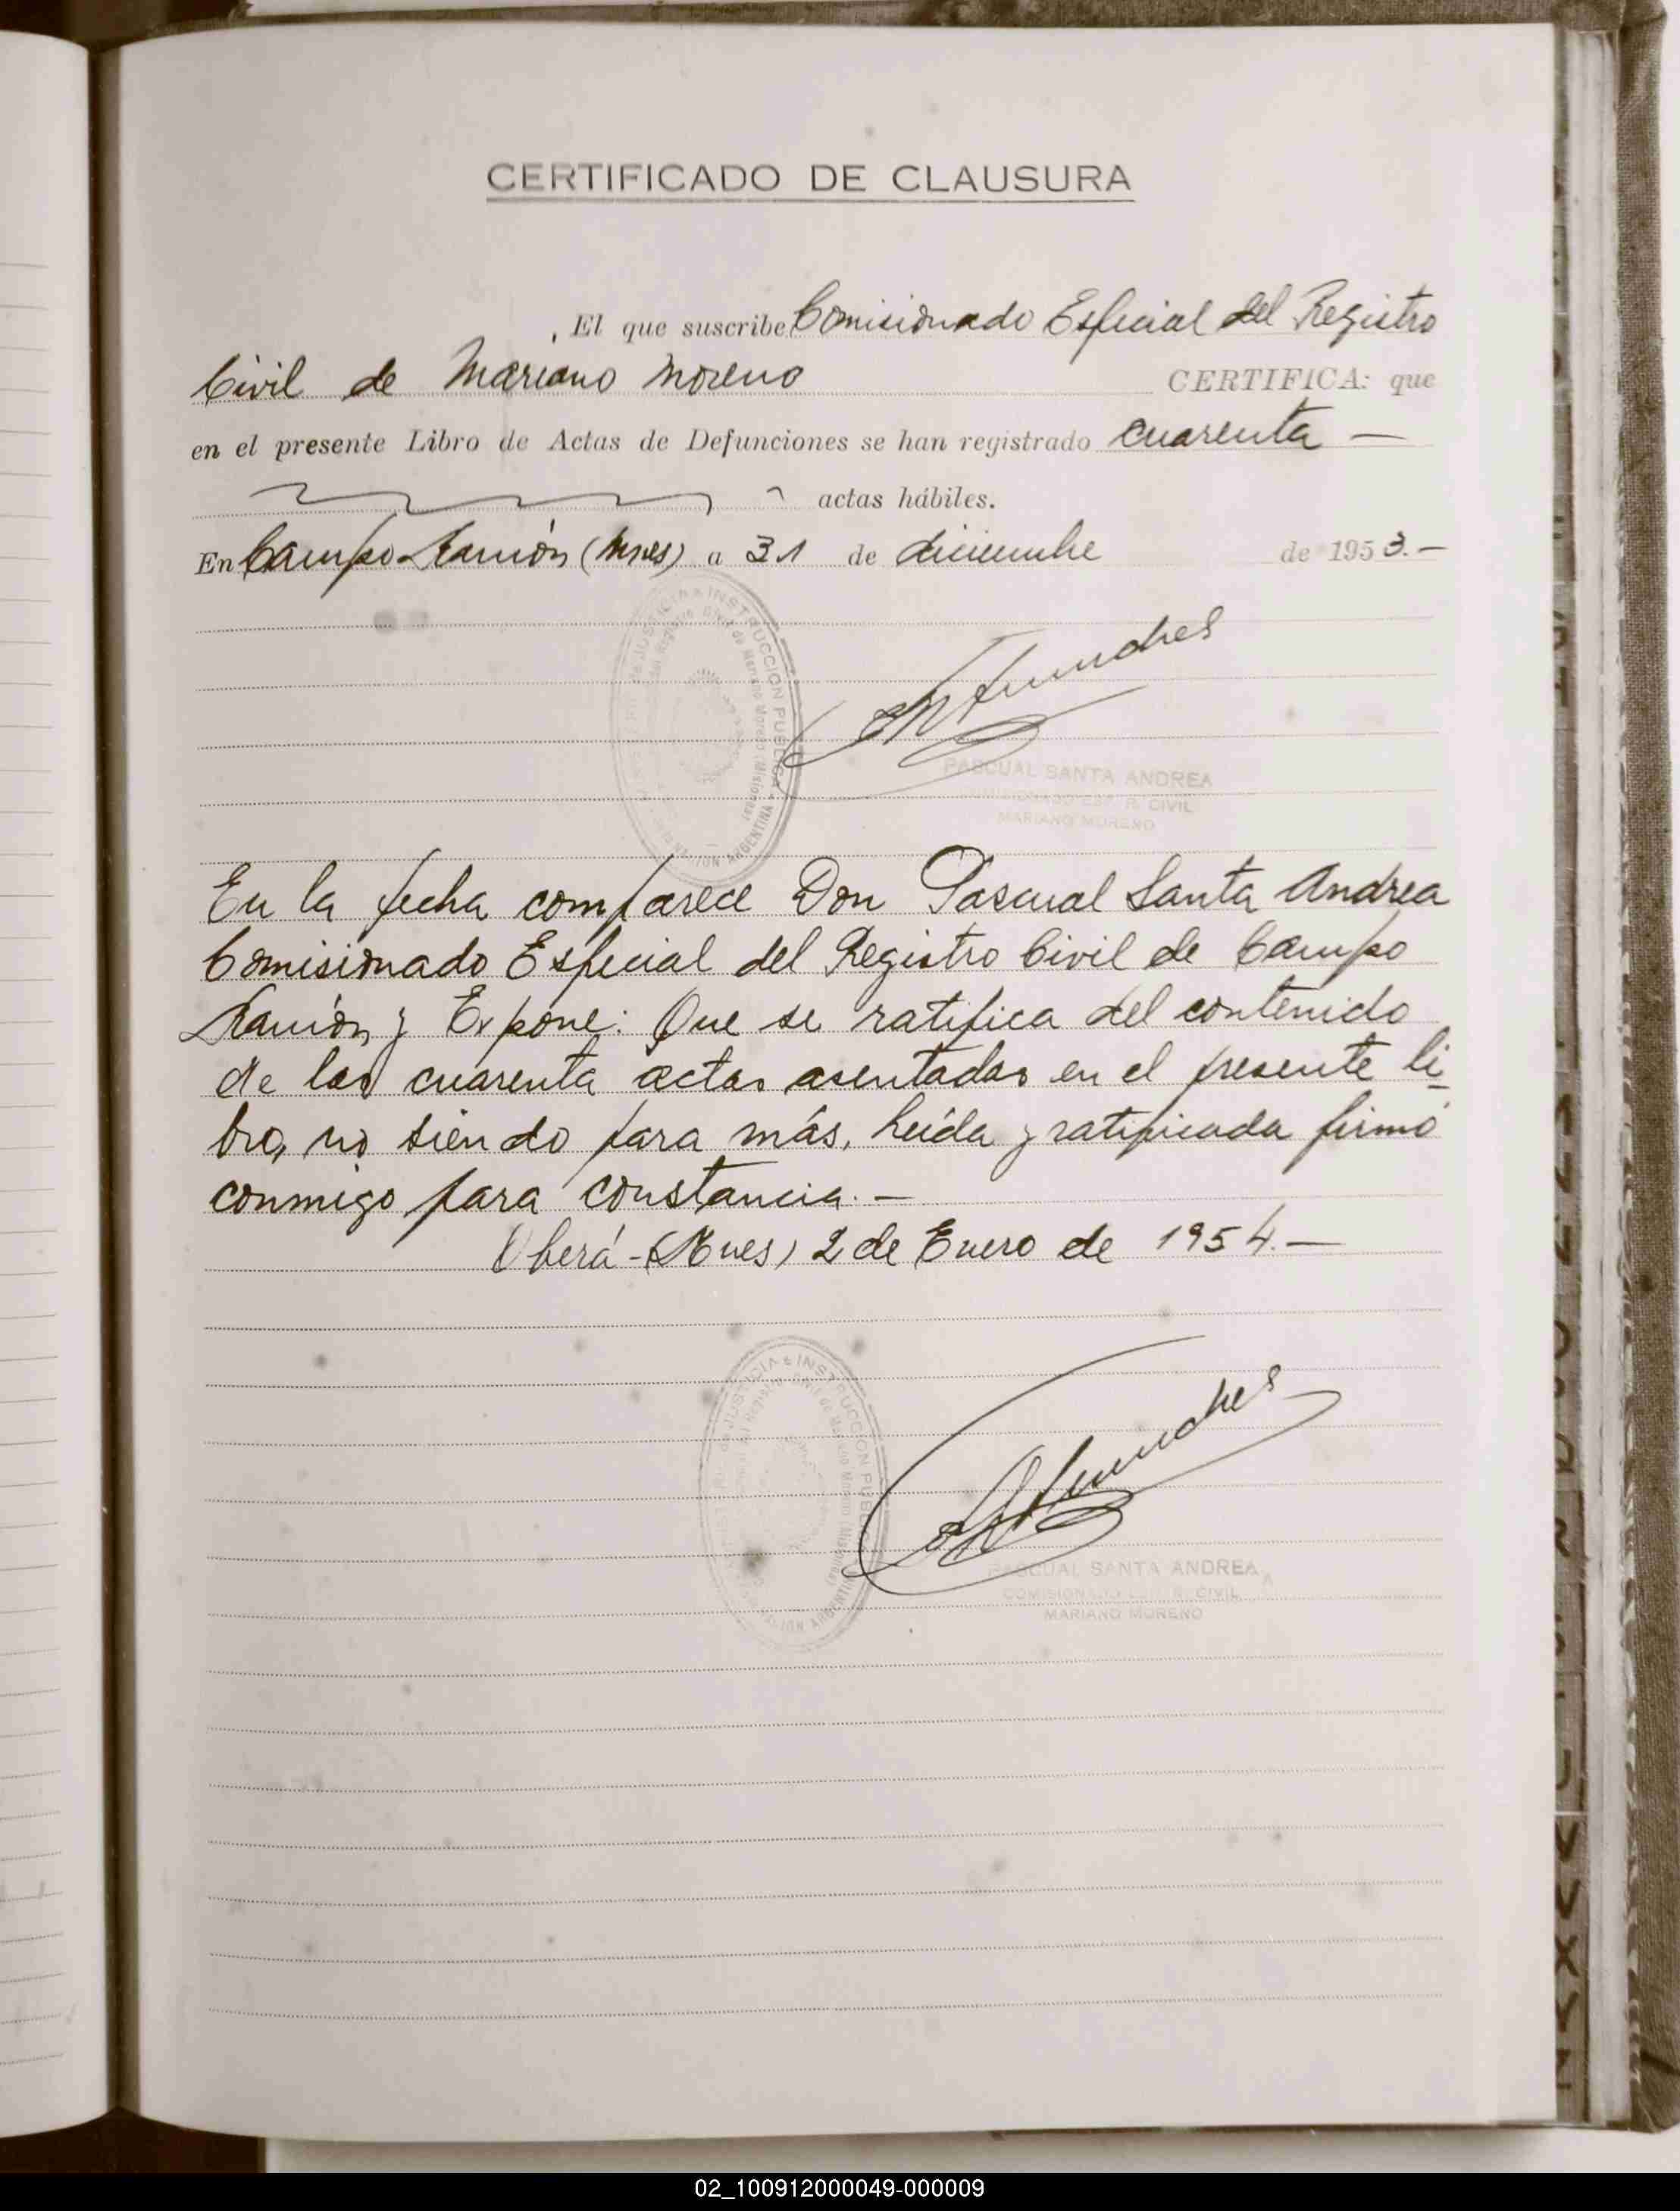 CERTIFICADO DE CLAUSURA
El que suscribe Comisionado Especial del Registro
Civil de Mariano Moreno CERTIFICA: que
en el presente Libro de Actas de Defunciones se han registrado cuarenta —
actas hábiles.
En Campo Ramón (Mnes) a 31 de diciembre de 1953.-
JUSTICIA e INSTRUCCION PUBLICA
del Registro Civil de Mariano Moreno (Misiones)
NACION ARGENTINA
PASCUAL SANTA ANDREA
COMISIONADO ESP. R. CIVIL
MARIANO MORENO
En la fecha comparece Don Pascual Santa Andrea
Comisionado Especial del Registro Civil de Campo
Ramón y Expone: Que se ratifica del contenido
de las cuarenta actas asentadas en el presente li-
bro, no siendo para más, leída y ratificada firmó
conmigo para constancia.-
Oberá-(Mnes) 2 de Enero de 1954.-
de JUSTICIA e INSTRUCCION PUBLICA
del Registro Civil de Mariano Moreno (Misiones)
NACION ARGENTINA
PASCUAL SANTA ANDREA
COMISIONADO ESP. R. CIVIL
MARIANO MORENO
02_100912000049-000009